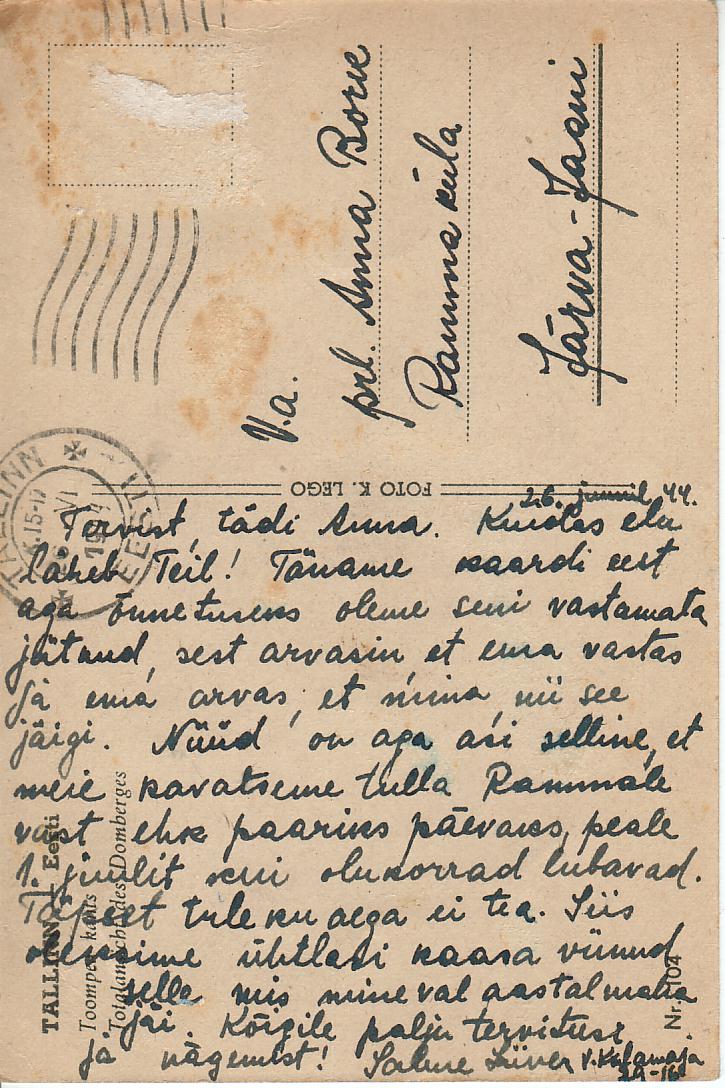 V.a.
prl. Anna Bork
Ramma küla
Järva-Jaani
FOTO K. LEGO
TALLINN
EESTI
26. juunil 44.
Tervist, tädi Anna. Kuidas elu
läheb Teil! Täname kaardi eest
aga õnnetuseks oleme seni vastamata
jätnud, sest arvasin et ema vastas
ja ema arvas, et mina, nii see
jäigi. Nüüd on aga asi selline, et
meie kavatseme tulla Rammale
vast ehk paariks päevaks, peale
1. juulit kui olukorrad lubavad.
Täpset tuleku aega ei tea. Siis
oleksime ühtlasi kaasa viinud
selle mis mineval aastal maha
jäi. Kõigile palju tervitusi
ja nägemist! Salme Siiver V. Kalamaja
TALLINN Eesti
Toompea kants
Totalansicht des Domberges
Nr. 104